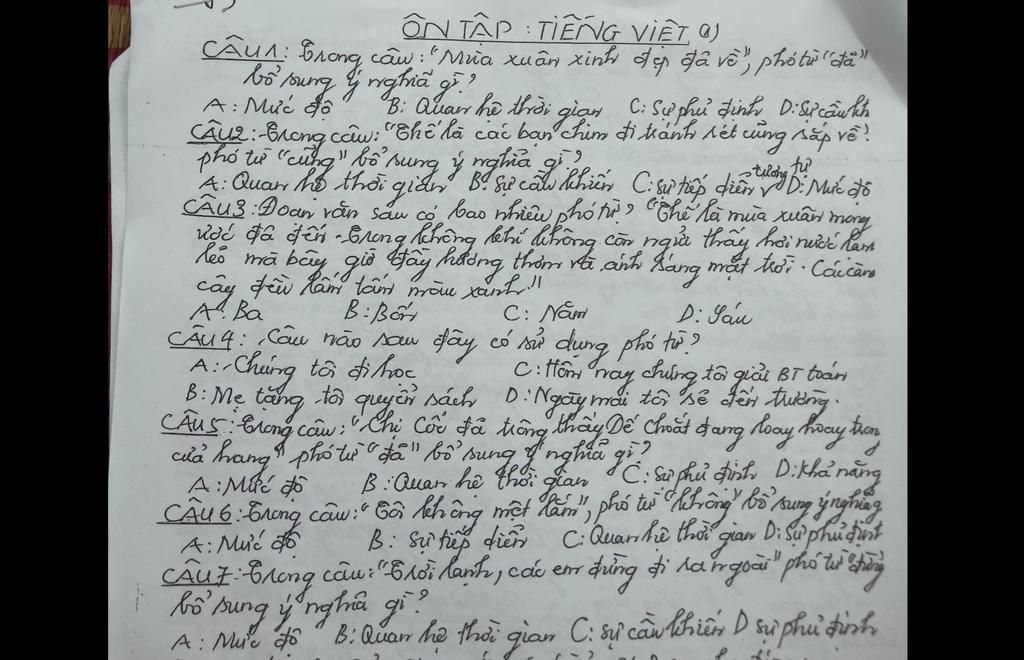 ÔN TẬP: TIẾNG VIỆT (1)
CÂU 1: Trong câu: "Mùa xuân xinh đẹp đã về", phó từ "đã"
bổ sung ý nghĩa gì?
A: Mức độ B: Quan hệ thời gian C: Sự phủ định D: Sự cầu kh
CÂU 2: Trong câu: "Thế là các bạn chim đi tránh rét cũng sắp về!
phó từ "cũng" bổ sung ý nghĩa gì?
A: Quan hệ thời gian B: Sự cầu khiến C: Sự tiếp diễn tương tự D: Mức độ
CÂU 3: Đoạn văn sau có bao nhiêu phó từ? "Thế là mùa xuân mong
ước đã đến. Trong không khí không còn ngửi thấy hơi nước lạnh
lẽo mà bây giờ đầy hương thơm và ánh sáng mặt trời. Các cành
cây đều lấm tấm màu xanh"
A: Ba B: Bốn C: Năm D: Sáu
CÂU 4: Câu nào sau đây có sử dụng phó từ?
A: Chúng tôi đi học C: Hôm nay chúng tôi giải BT toán
B: Mẹ tặng tôi quyển sách D: Ngày mai tôi sẽ đến trường.
CÂU 5: Trong câu: "Chị Cốc đã trông thấy Dế Choắt đang loay hoay trong
cửa hang" phó từ "đã" bổ sung ý nghĩa gì?
A: Mức độ B: Quan hệ thời gian C: Sự phủ định D: Khả năng
CÂU 6: Trong câu: "Tôi không mệt lắm", phó từ "không" bổ sung ý nghĩa
A: Mức độ B: Sự tiếp diễn C: Quan hệ thời gian D: Sự phủ định
CÂU 7: Trong câu: "Trời lạnh, các em đừng đi ra ngoài" phó từ "đừng
bổ sung ý nghĩa gì?
A: Mức độ B: Quan hệ thời gian C: Sự cầu khiến D Sự phủ định